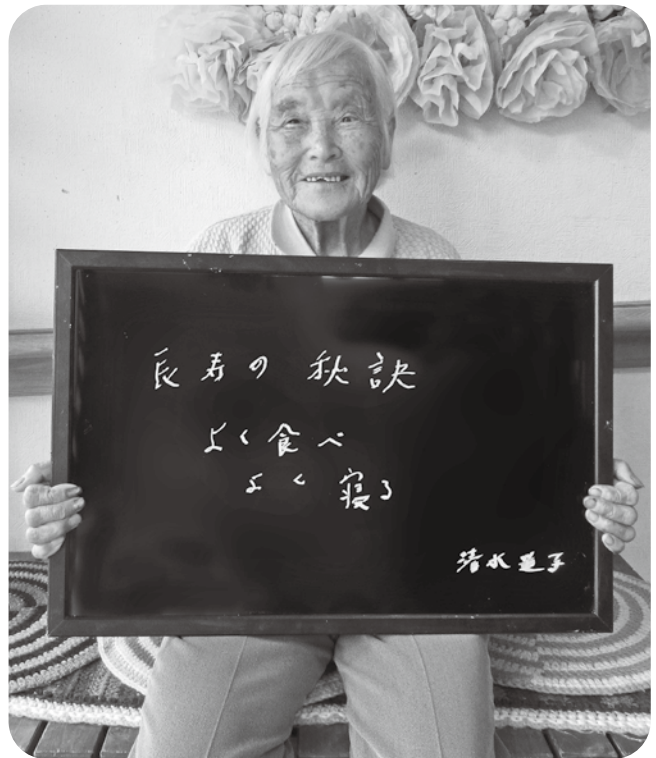 長寿の秘訣
よく食べ
よく寝る
清水道子